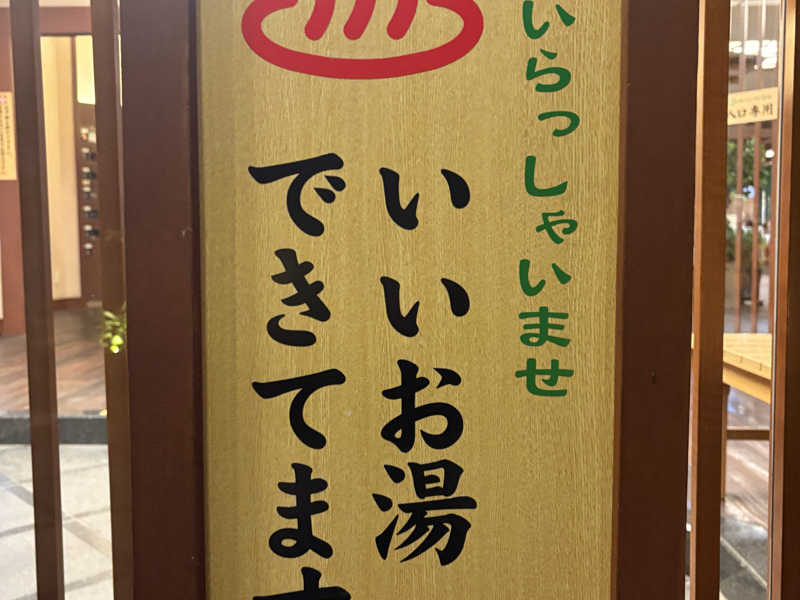 いらっしゃいませ
いいお湯
できてます
入口専用